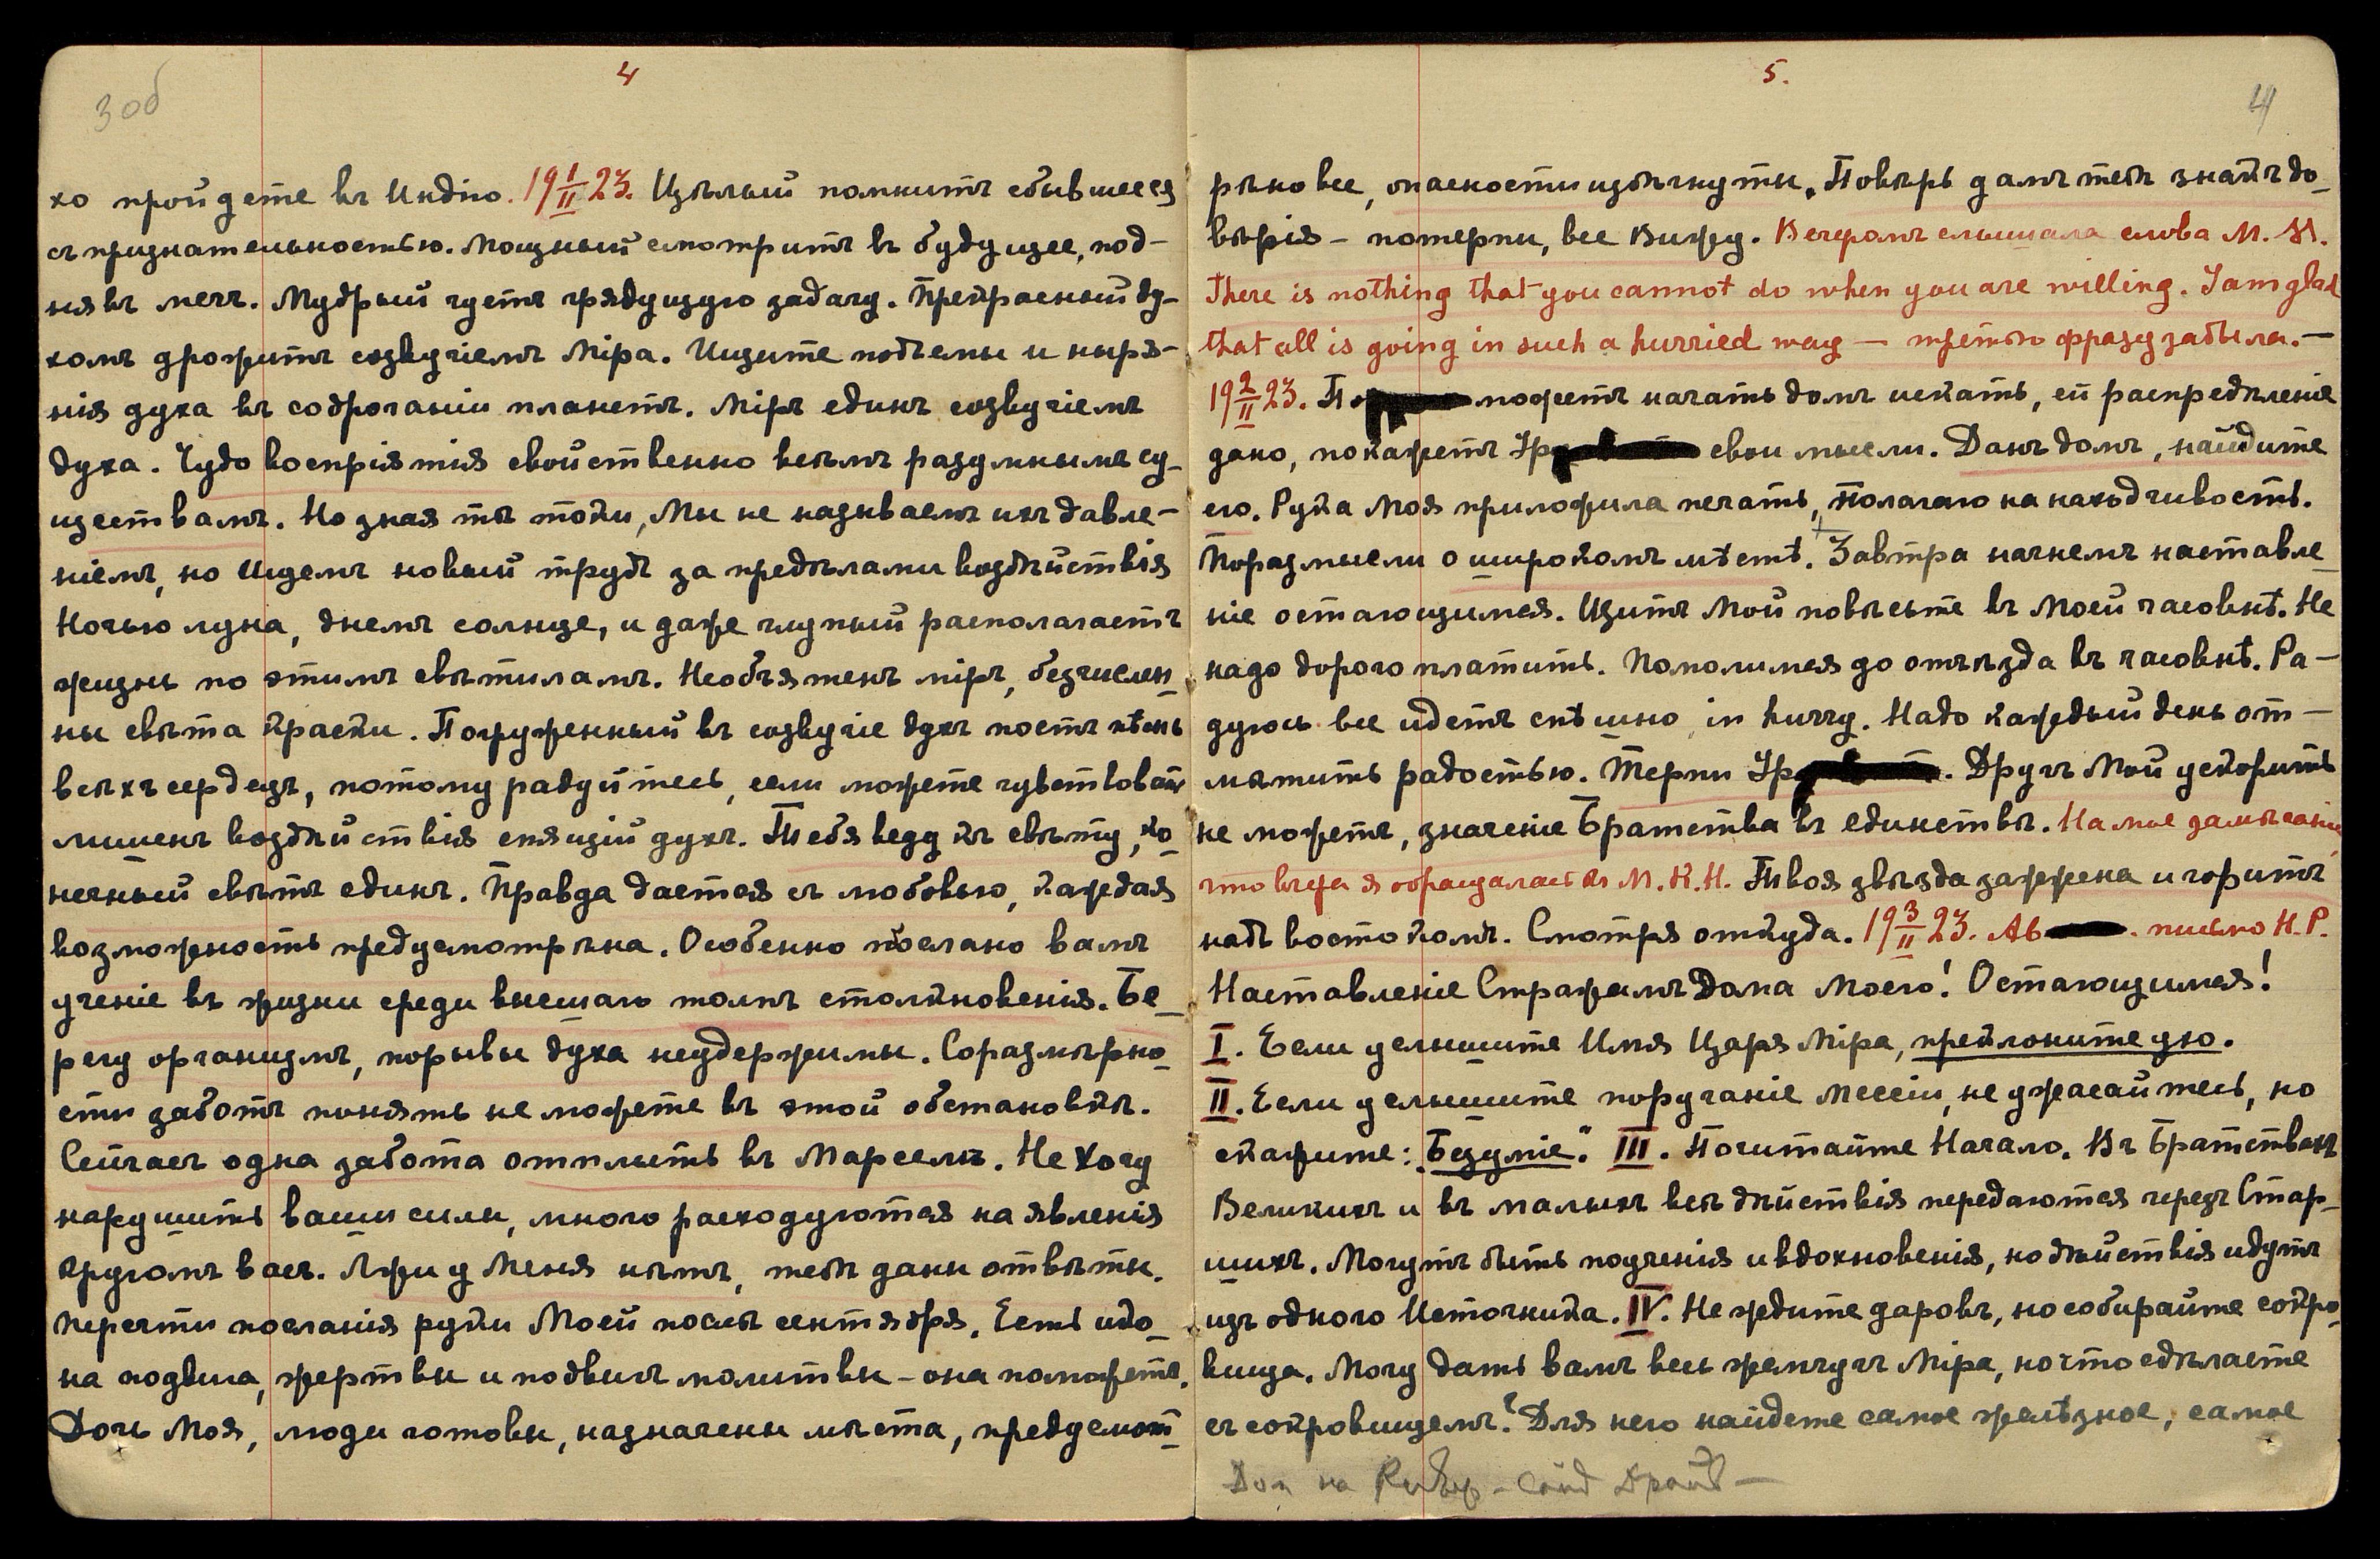 4
3 об
хо пройдете въ Индію. 19 1/II 23. Цѣлый помнитъ сбывшееся
съ признательностью. Мощный смотритъ въ будущее, под-
нявъ мечъ. Мудрый чуетъ грядущую задачу. Прекрасный ду-
хомъ дрожитъ созвучіемъ Міра. Ищите подъемы и ныря-
нія духа въ содроганіи планетъ. Міръ единъ созвучіемъ
духа. Чудо воспріятія свойственно всѣмъ разумнымъ су-
ществамъ. Но зная тѣ токи, Мы не называемъ ихъ давле-
ніемъ, но Ищемъ новый трудъ за предѣлами воздѣйствія
Ночью луна, днемъ солнце, и даже глупый располагаетъ
жизнь по этимъ свѣтиламъ. Необъятенъ міръ, безчислен-
ны свѣта краски. Погруженный въ созвучіе духъ поетъ пѣснь
всѣхъ сердецъ, потому радуйтесь, если можете чувствовать
лишенъ воздѣйствія спящій духъ. Тебя веду къ свѣту, ко-
нечный свѣтъ единъ. Правда дается съ любовью, каждая
возможность предусмотрѣна. Особенно послано вамъ
ученіе въ жизни среди внешняго толпъ столкновенія. Бе-
регу организмъ, порывы духа неудержимы. Соразмѣрно-
сти заботъ понять не можете въ этой обстановкѣ.
Сейчасъ одна забота отплыть въ Марсель. Не Хочу
нарушить ваши силы, много расходуются на явленія
кругомъ васъ. Лжи у Меня нѣтъ, тебѣ даны отвѣты.
Перечти посланія руки Моей послѣ сентября. Есть ико-
на подвига, жертвы и подвигъ молитвы - она поможетъ.
Дочь Моя, люди готовы, назначены мѣста, предусмот-
5.
4
рѣно все, опасности избѣгнуты. Повѣрь дамъ тебѣ знакъ до-
вѣрія - потерпи, все Вижу. Вечеромъ слышала слова М. М.
There is nothing that you cannot do when you are willing. I am glad
that all is going in such a hurried way — третью фразу забыла. —
19 2/II 23. П можетъ начать домъ искать, ей распредѣленіе
дано, покажетъ Ур свои мысли. Данъ домъ, найдите
его. Рука Моя приложила печать, Полагаю на находчивость.
Поразмысли о широкомъ мѣстѣ. Завтра начнемъ наставле-
ніе остающимся. Щитъ Мой повѣсьте въ Моей часовнѣ. Не
надо дорого платить. Помолимся до отъѣзда въ часовнѣ. Ра-
дуюсь все идетъ спѣшно, in hurry. Надо каждый день от-
мѣтить радостью. Терпи Ур. Другъ Мой ускорить
не можетъ, значеніе Братства въ единствѣ. На мое замѣчаніе,
что вчера я обращалась къ М. К. Н. Твоя звѣзда зажжена и горитъ
надъ востокомъ. Смотря откуда. 19 3/II 23. Ав. письмо Н. Р.
Наставленіе Стражамъ Дома Моего! Остающимся!
I. Если услышите Имя Царя Міра, преклоните ухо.
II. Если услышите поруганіе Мессіи, не ужасайтесь, но
скажите: „Безуміе." III. Почитайте Начало. Въ Братствахъ
Великихъ и въ малыхъ всѣ дѣйствія передаются черезъ Стар-
шихъ. Могутъ быть поученія и вдохновенія, но дѣйствія идутъ
изъ одного Источника. IV. Не ждите даровъ, но собирайте сокро-
вища. Могу дать вамъ весь жемчугъ Міра, но что сдѣлаете
съ сокровищемъ? Для него найдете самое желѣзное, самое
Дом на Ривер-Сайд Драйв —